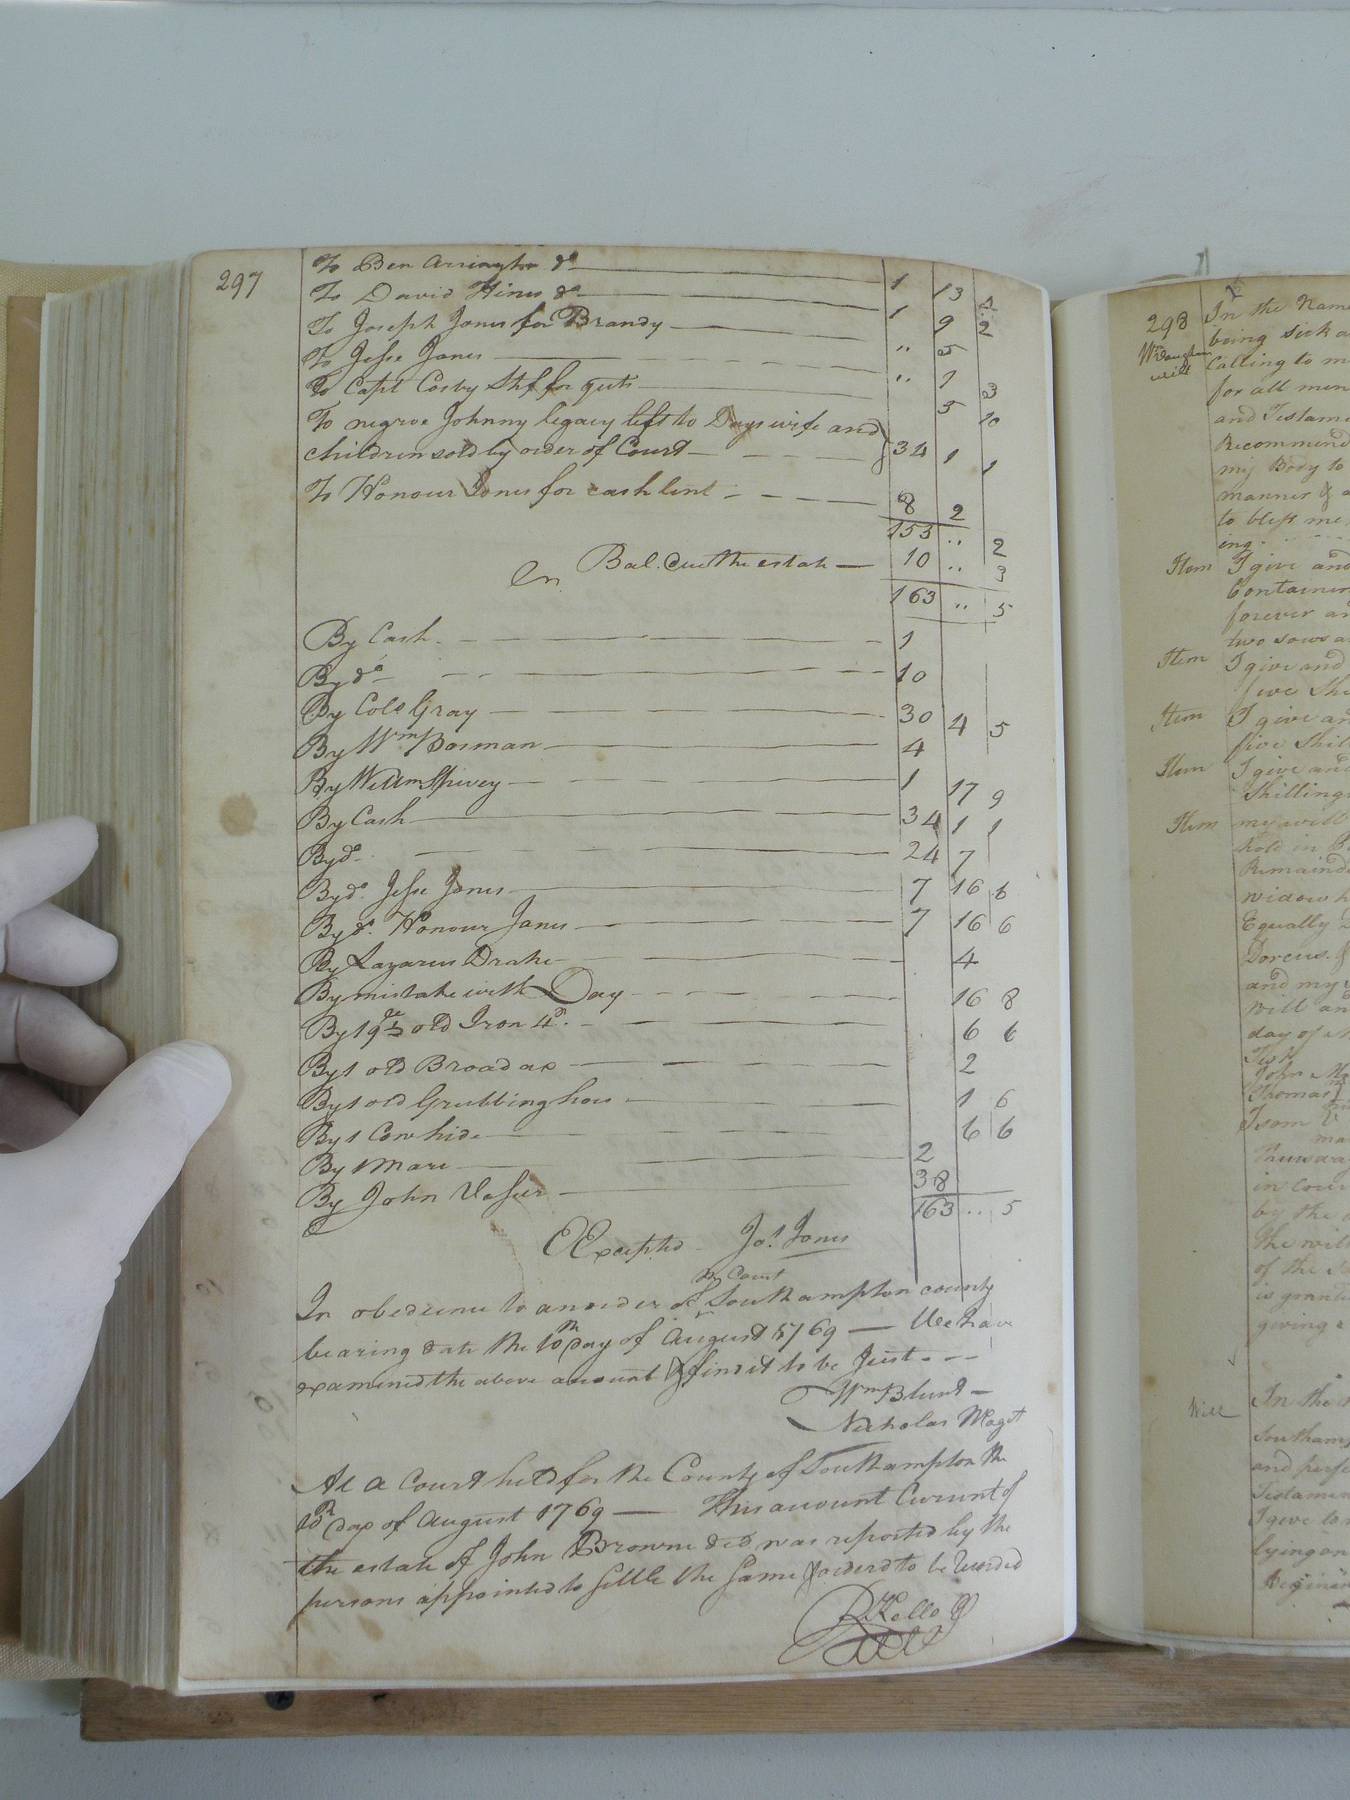 297
To Ben Arrington do 1 13
To David Hines do 1 9 2
To Joseph Jones for Brandy " 5
To Jesse Jones " 7 3
To Capt Cosby Shff for quits 5 10
To negroe Johnny legacy left to Days wife and
children sold by order of Court 34 1 1
To Honour Jones for cash lent 8 2
153 " 2
Bal. due the estate 10 " 3
163 " 5
By Cash 1
By do 10
By Colo Gray 30 4 5
By Wm Bosman 4
By Willm Spivey 1 17 9
By Cash 34 1 1
By do 24 7
By do. Jesse Jones 7 16 6
By do. Honour Jones 7 16 6
By Lazarus Drake 4
By mistake with Day 16 8
By 19 old Iron 4d. 6 6
By 1 old Broad ax 2
By 1 old Grubbing hoe 1 6
By 1 Cow hide 6 6
By 1 Mare 2
By John Vasser 38
163 " 5
EExcepted Jos. Jones
In obedience to an order of ye Court Southampton county
bearing date the 10th day of August 1769 — We have
examined the above account & find it to be Just
Wm Blunt
Nicholas Magt
At a Court held for the County of Southampton the
10th day of August 1769 — This account Current of
the estate of John Browne decd was reported by the
persons appointed to settle the same & orderd to be Recorded
R. Kello
298
Wm Vaughan
will
In the Name
being sick a
Calling to m
for all men
and Testame
Recommend
my Body to
manner & a
to bless me
ing
Item I give and
Containin
forever an
two sows a
Item I give and
five Shi
Item I give an
five Shill
Item I give and
Shilling
Item my will
hold in
Remainde
widow h
Equally
Dorcus &
and my
will an
day of
Test
John
Thomas
Isom
in cour
by the
the will
of the
is grante
giving
Will In the
Southam
and perfe
Testamen
I give to
lying on
Beginin